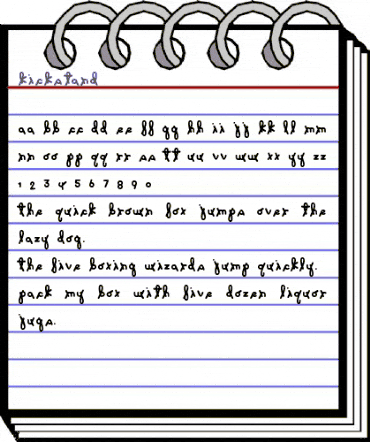 kickstand
aa bb cc dd ee ff gg hh ii jj kk ll mm
nn oo pp qq rr ss tt uu vv ww xx yy zz
1 2 3 4 5 6 7 8 9 0
the quick brown fox jumps over the
lazy dog.
the five boxing wizards jump quickly.
pack my box with five dozen liquor
jugs.